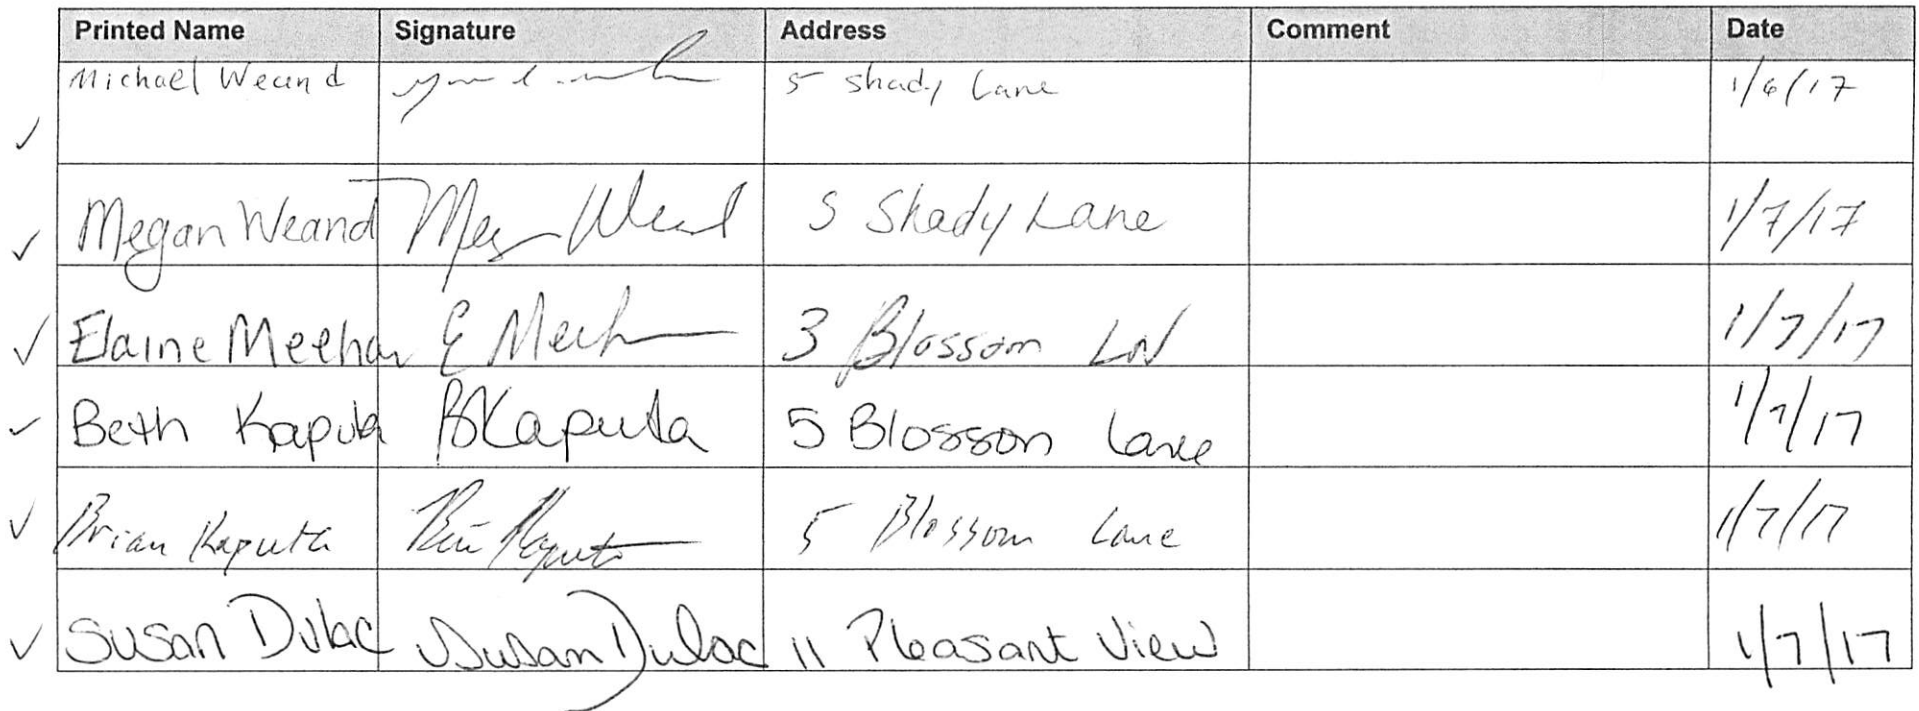 Printed Name Signature Address Comment Date
Michael Weand 5 Shady Lane 1/6/17
Megan Weand Megan Weand 5 Shady Lane 1/7/17
Elaine Meehan E Meehan 3 Blossom LN 1/7/17
Beth Kaputa BKaputa 5 Blossom Lane 1/7/17
Brian Kaputa Brian Kaputa 5 Blossom Lane 1/7/17
Susan Dulac Susan Dulac 11 Pleasant View 1/7/17